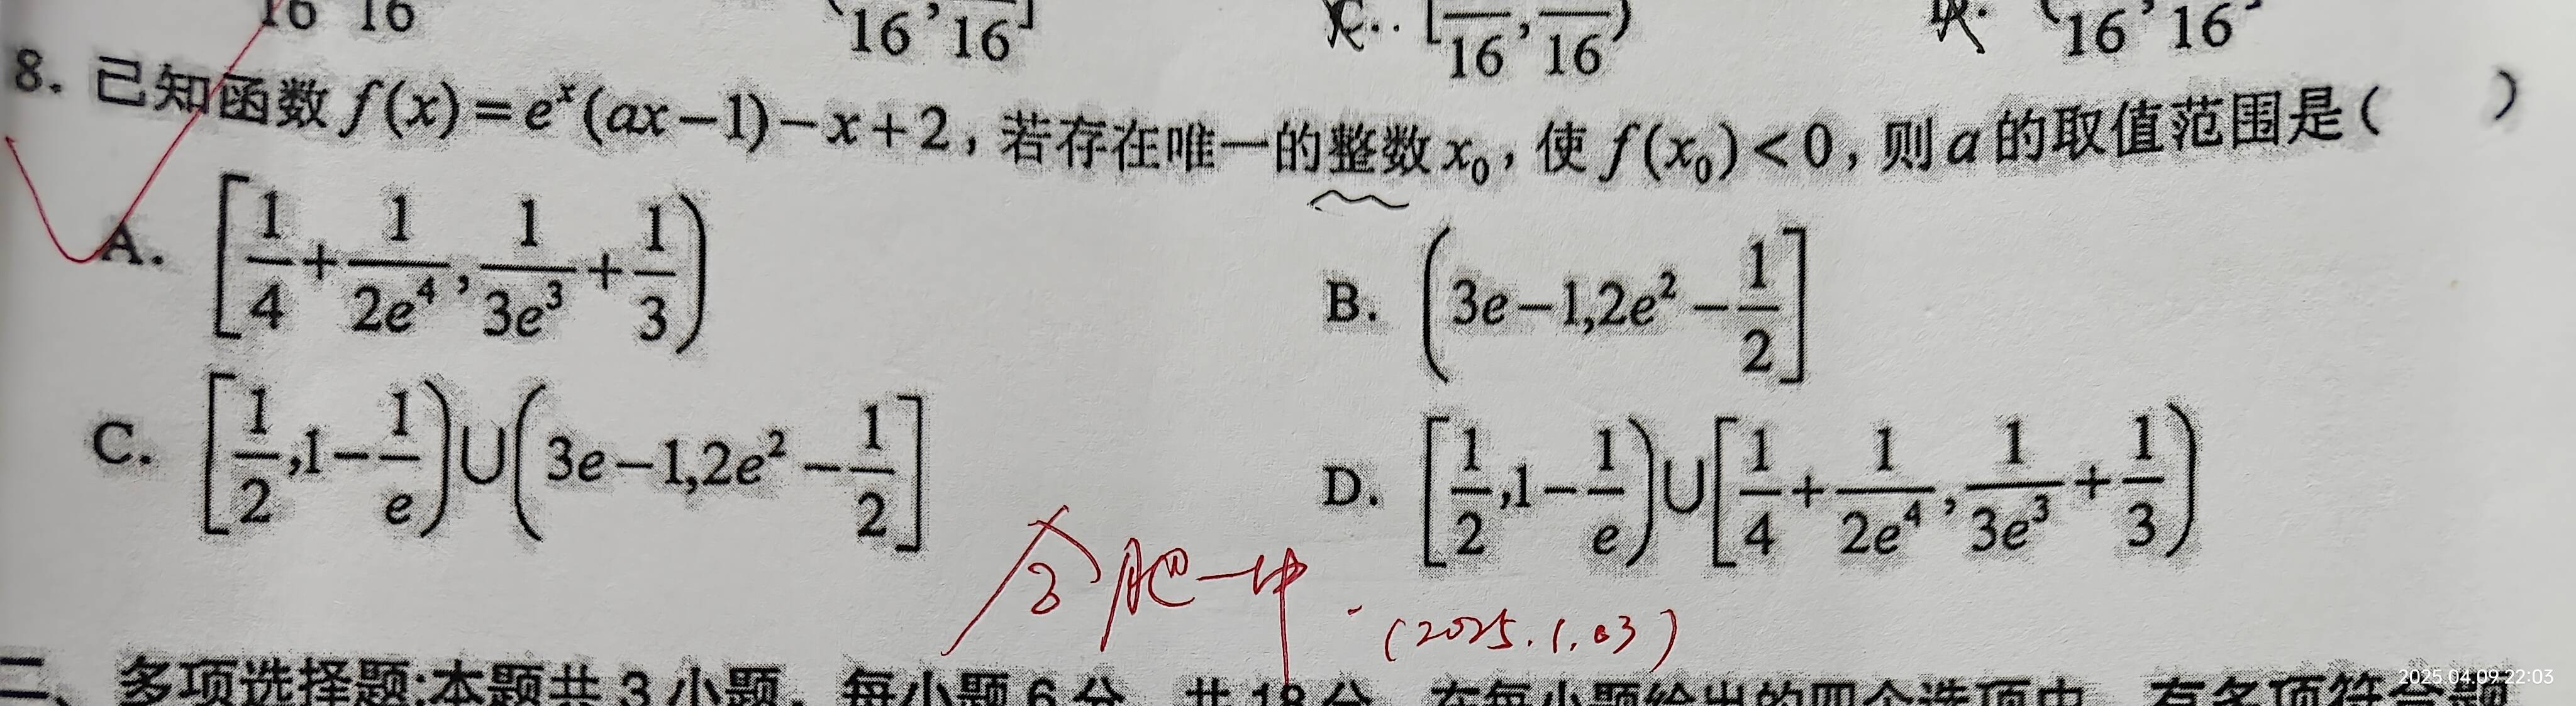 16 16 16, 16] C.. [16, 16) (16, 16]
8. 已知函数 f(x)=e^x(ax-1)-x+2, 若存在唯一的整数 x₀, 使 f(x₀)<0, 则 a 的取值范围是( )
A. [1/4+1/2e⁴, 1/3e³+1/3)
B. (3e-1,2e²-1/2]
C. [1/2,1-1/e)∪(3e-1,2e²-1/2]
D. [1/2,1-1/e)∪[1/4+1/2e⁴, 1/3e³+1/3)
合肥一中 (2025.1.03)
二、多项选择题:本题共 3 小题, 每小题 6 分, 共 18 分, 在每小题给出的四个选项中, 有多项符合题
2025.04.09 22:03